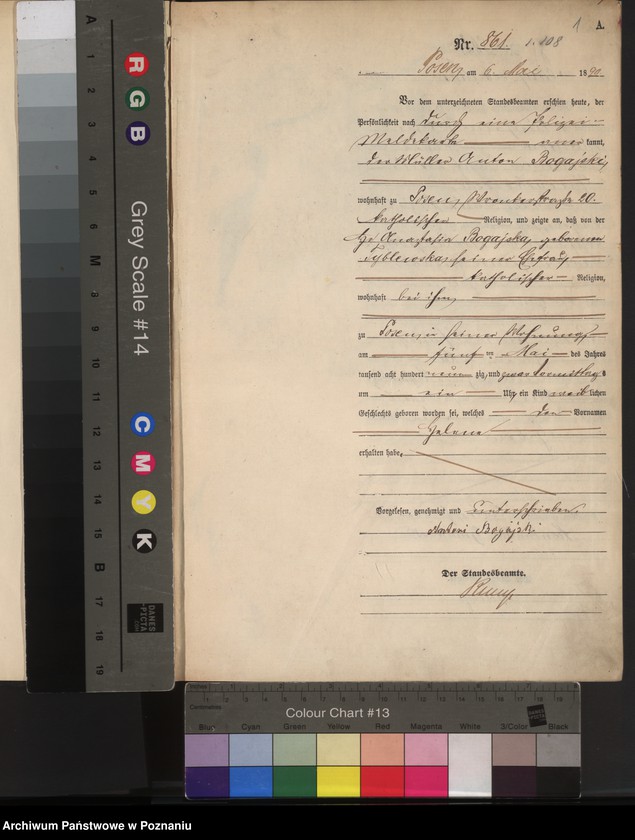 1 A.
Nr. 861.
Posen, am 6. Mai 1890
Vor dem unterzeichneten Standesbeamten erschien heute, der
Persönlichkeit nach durch eine Polizei-
Meldekarte kannt,
der Müller Anton Bogajski,
wohnhaft zu Posen, Wronkerstraße 20.
katholischer Religion, und zeigte an, daß von der
Anastasia Bogajska, geborenen
seiner Ehefrau,
katholischer Religion,
wohnhaft bei ihm,
zu Posen, in seiner Wohnung
am fünf ten Mai des Jahres
tausend acht hundert neun zig, und zwar Vormittag s
um ein Uhr, ein Kind weib lichen
Geschlechts geboren worden sei, welches den Vornamen
Helene
erhalten habe.
Vorgelesen, genehmigt und unterschrieben.
Antoni Bogajski
Der Standesbeamte.
A 1 2 3 4 5 6 M 8 9 10 11 12 13 14 15 B 17 18 19
R
G
B
Grey Scale #14
C
M
Y
K
DANES
-PICTA
.COM
Inches
Centimetres
Colour Chart #13
Blue Cyan Green Yellow Red Magenta White 3/Color Black
Archiwum Państwowe w Poznaniu